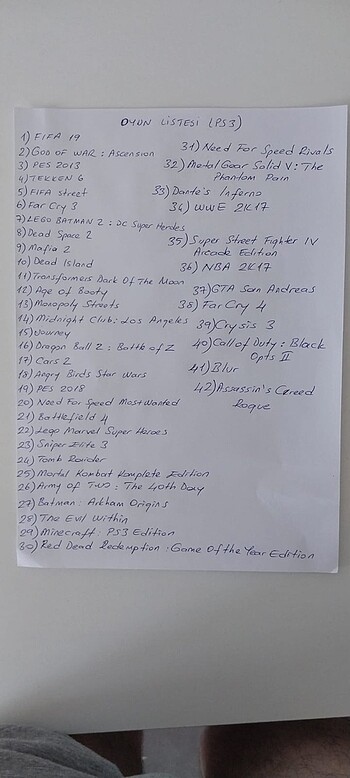 OYUN LİSTESİ (PS3)
1) FIFA 19
2) GOD OF WAR : Ascension
3) PES 2013
4) TEKKEN 6
5) FIFA street
6) Far Cry 3
7) LEGO BATMAN 2 : DC Super Heroes
8) Dead Space 2
9) Mafia 2
10) Dead Island
11) Transformers Dark Of The Moon
12) Age of Booty
13) Monopoly Streets
14) Midnight Club: Los Angeles
15) Journey
16) Dragon Ball Z : Battle of Z
17) Cars 2
18) Angry Birds Star Wars
19) PES 2018
20) Need For Speed Most Wanted
21) Battlefield 4
22) Lego Marvel Super Heroes
23) Sniper Elite 3
24) Tomb Raider
25) Mortal Kombat Komplete Edition
26) Army of Two : The 40th Day
27) Batman : Arkham Origins
28) The Evil Within
29) Minecraft : PS3 Edition
30) Red Dead Redemption : Game Of the Year Edition
31) Need For Speed Rivals
32) Metal Gear Solid V : The
Phantom Pain
33) Dante's Inferno
34) WWE 2K17
35) Super Street Fighter IV
Arcade Edition
36) NBA 2K17
37) GTA San Andreas
38) Far Cry 4
39) Crysis 3
40) Call of Duty : Black
Opts II
41) Blur
42) Assassin's Creed
Rogue